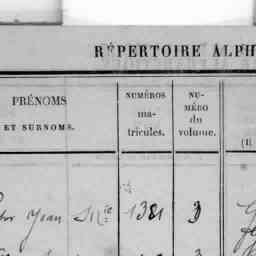 RÉPERTOIRE ALPH
PRÉNOMS
ET SURNOMS.
NUMÉROS
ma-
tricules.
NU-
MÉRO
du
volume.
(1)
Jean 1381 3